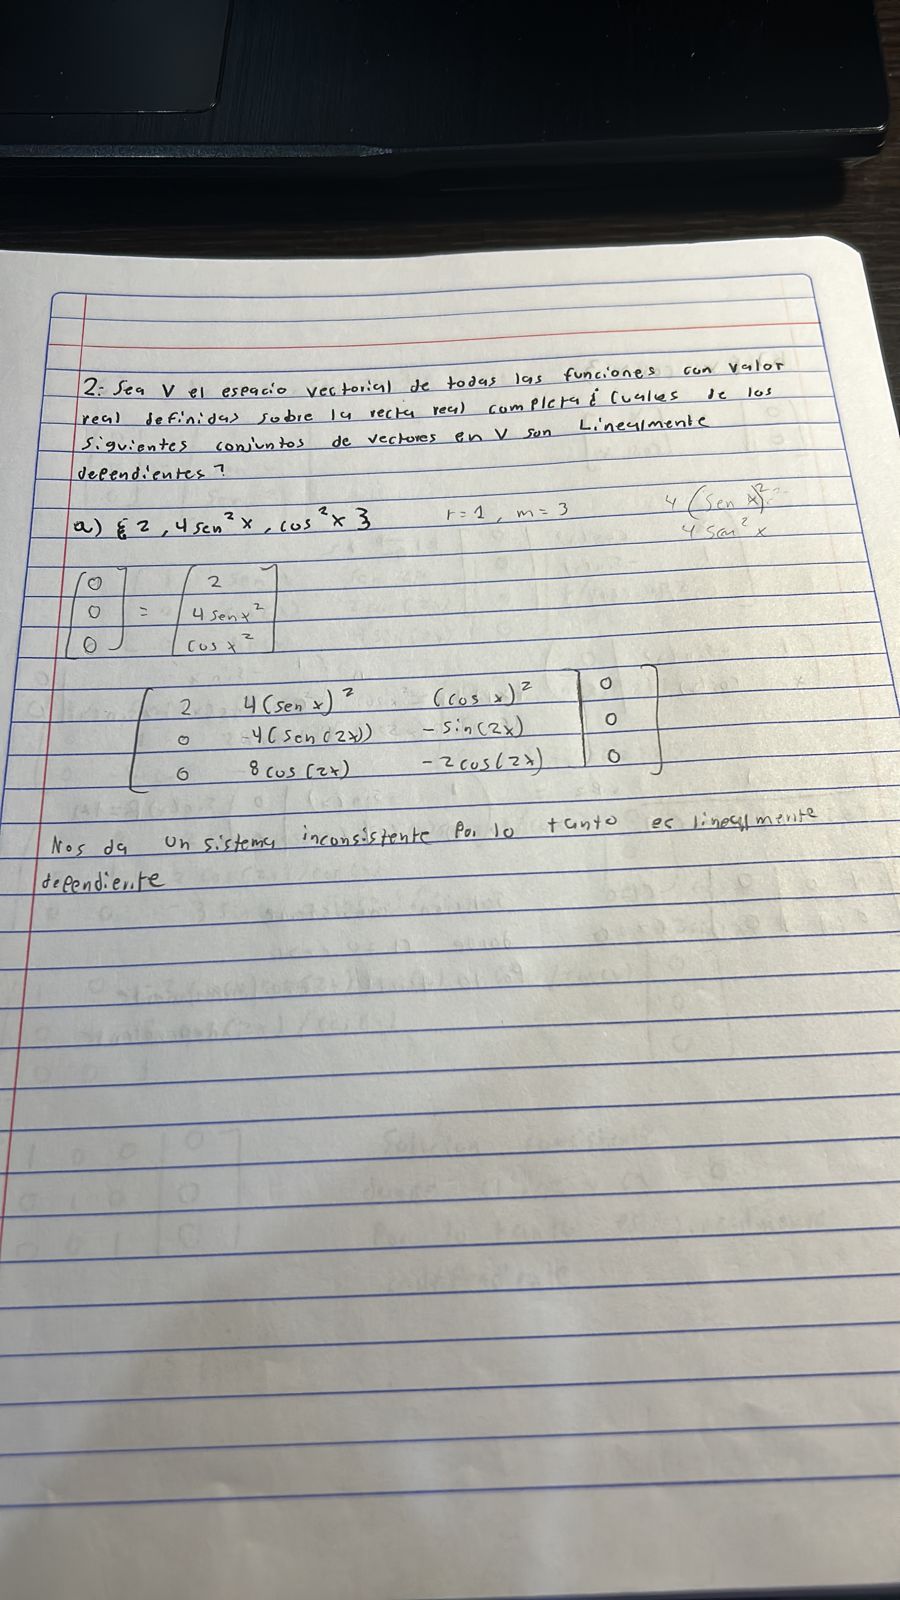 2.- Sea V el espacio vectorial de todas las funciones con valor
real definidas sobre la recta real completa ¿ Cuales de los
siguientes conjuntos de vectores en V son Linealmente
dependientes?
a) { 2 , 4 sen² x , cos² x } r = 1 , m = 3 4 (sen x)² =
4 sen² x
[ 0 ] [ 2 ]
[ 0 ] = [ 4 sen x² ]
[ 0 ] [ cos x² ]
2 4(sen x)² (cos x)² | 0
0 -4(sen(2x)) - sin(2x) | 0
0 8 cos(2x) -2cos(2x) | 0
Nos da un sistema inconsistente Por lo tanto es linealmente
dependiente